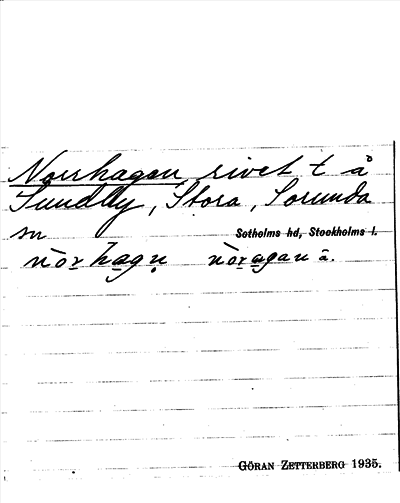 Norrhagen, rivet t å
Sundby, Stora, Sorunda
sn Sotholms hd, Stockholms l.
nòrhagn nòragan â.
GÖRAN ZETTERBERG 1935.